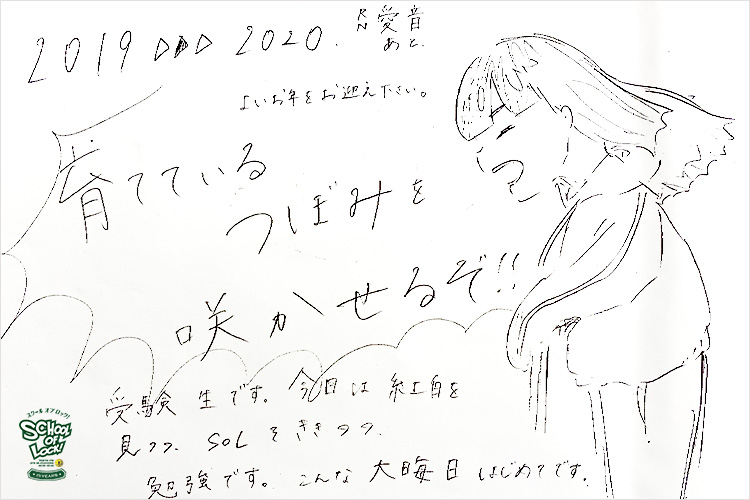 2019 ▷▷▷ 2020.
RN 愛音
あと
よいお年をお迎え下さい。
育てている
つぼみを
咲かせるぞ!!
受験生です。今日は紅白を
見つつ、SOLをききつつ、
勉強です。こんな大晦日はじめてです。
スクール オブ ロック!
SCHOOL
OF
LOCK!